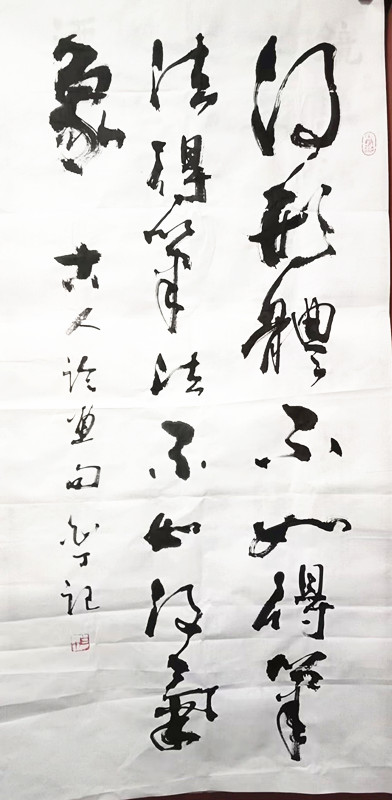 得形體不如得筆
法得筆法不如得氣
象
古人論畫句 記